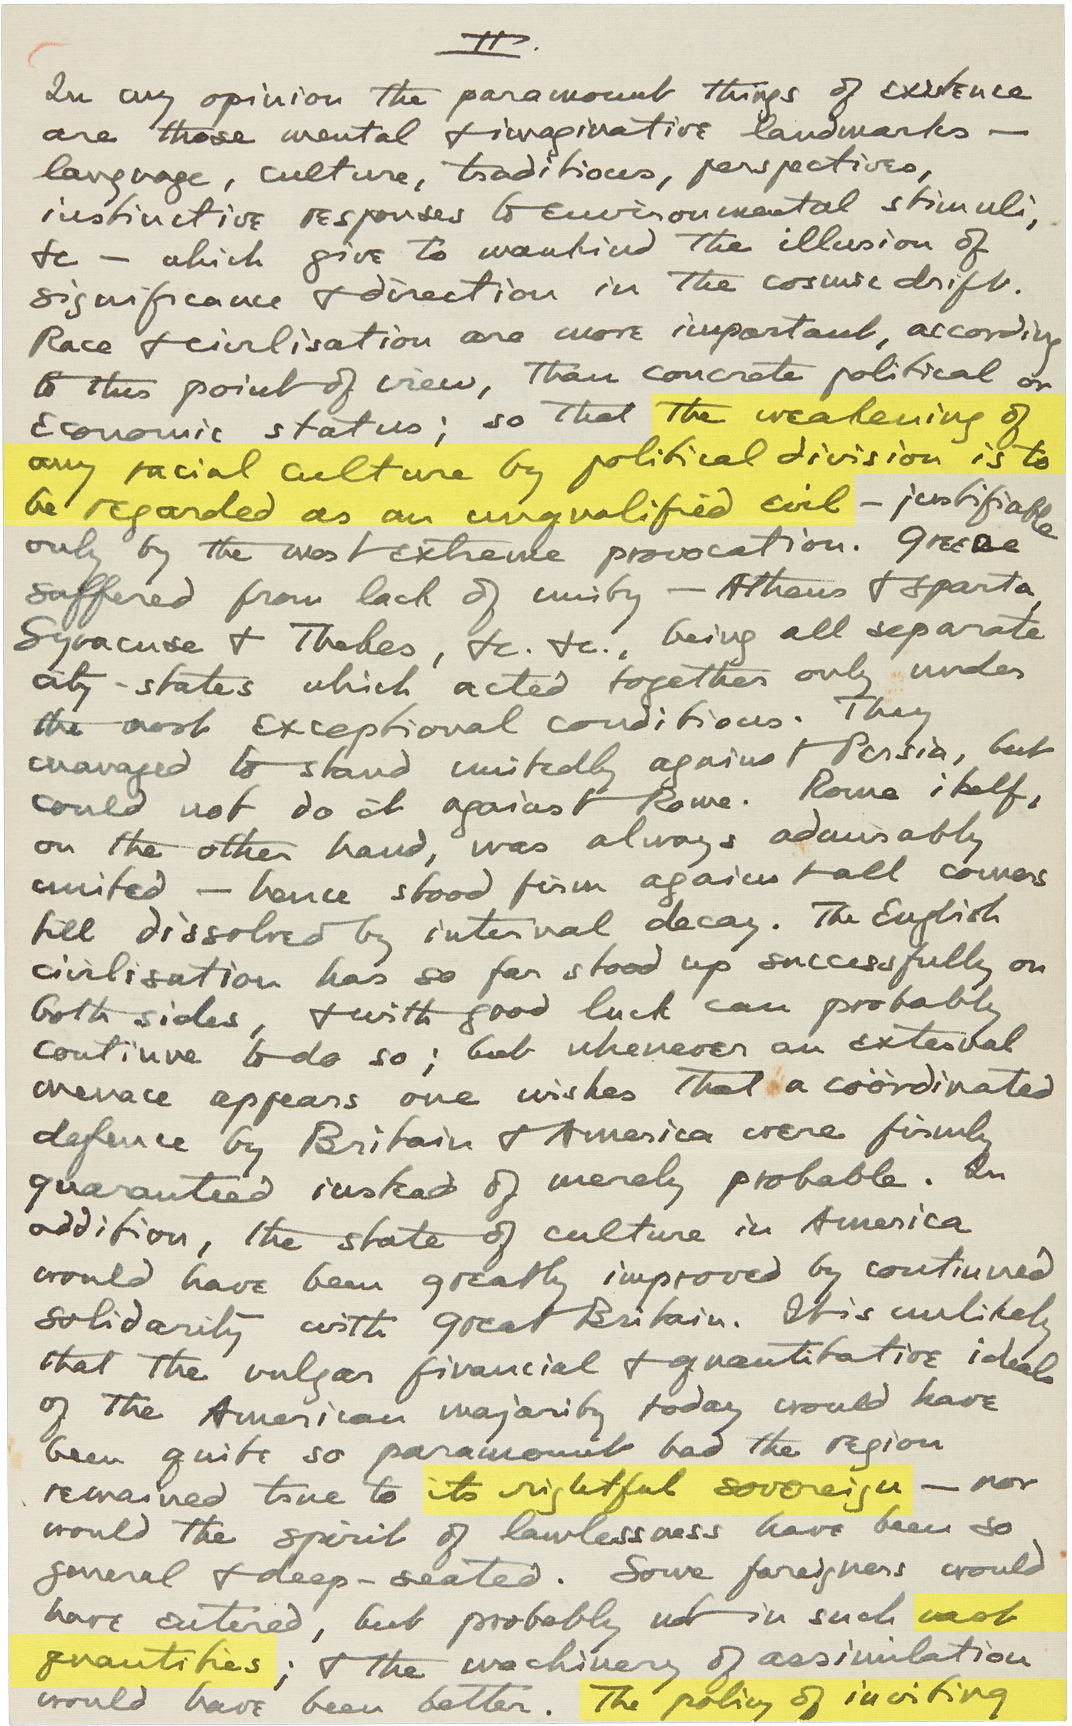 II.
In my opinion the paramount things of existence
are those mental & imaginative landmarks —
language, culture, traditions, perspectives,
instinctive responses to environmental stimuli,
&c — which give to mankind the illusion of
significance & direction in the cosmic drift.
Race & civilisation are more important, according
to this point of view, than concrete political or
economic status; so that the weakening of
any racial culture by political division is to
be regarded as an unqualified evil — justifiable
only by the most extreme provocation. Greece
suffered from lack of unity — Athens & Sparta,
Syracuse & Thebes, &c. &c., being all separate
city-states which acted together only under
the most exceptional conditions. They
managed to stand unitedly against Persia, but
could not do it against Rome. Rome itself,
on the other hand, was always admirably
united — hence stood firm against all comers
till dissolved by internal decay. The English
civilisation has so far stood up successfully on
both sides, & with good luck can probably
continue to do so; but whenever an external
menace appears one wishes that a coördinated
defence by Britain & America were firmly
guaranteed instead of merely probable. In
addition, the state of culture in America
would have been greatly improved by continued
solidarity with Great Britain. It is unlikely
that the vulgar financial & quantitative ideals
of the American majority today would have
been quite so paramount had the region
remained true to its rightful sovereign — nor
would the spirit of lawlessness have been so
general & deep-seated. Some foreigners would
have entered, but probably not in such vast
quantities; & the machinery of assimilation
would have been better. The policy of inviting